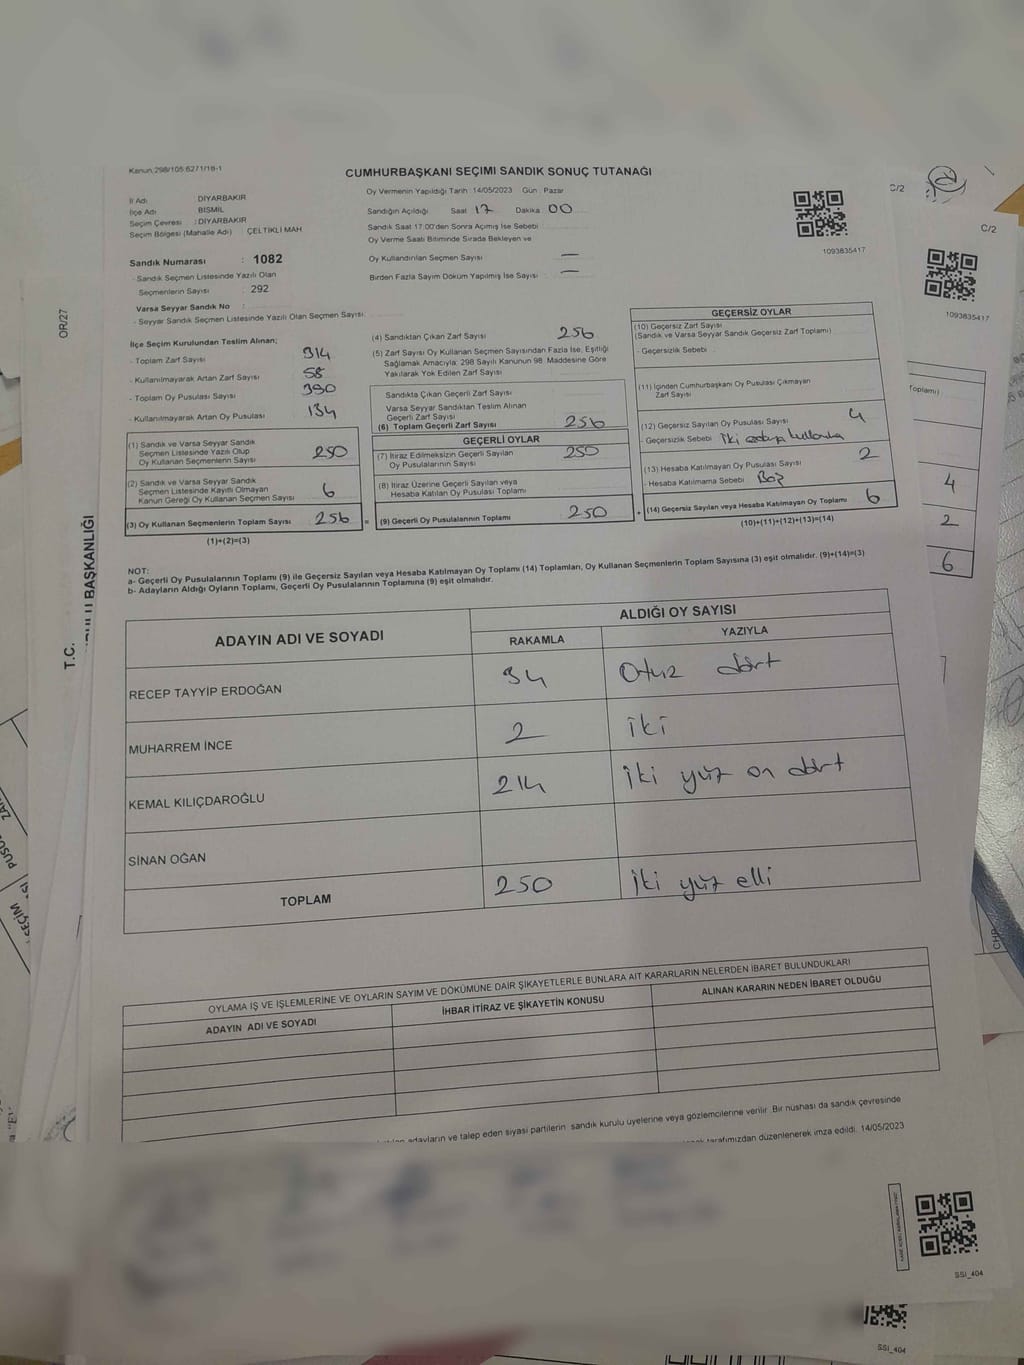 Kanun 298/105:6271/18-1
CUMHURBAŞKANI SEÇİMİ SANDIK SONUÇ TUTANAĞI
İl Adı DİYARBAKIR
İlçe Adı BİSMİL
Seçim Çevresi : DİYARBAKIR
Seçim Bölgesi (Mahalle Adı) ÇELTİKLİ MAH
Sandık Numarası : 1082
- Sandık Seçmen Listesinde Yazılı Olan
Seçmenlerin Sayısı : 292
Varsa Seyyar Sandık No :
- Seyyar Sandık Seçmen Listesinde Yazılı Olan Seçmen Sayısı
Oy Vermenin Yapıldığı Tarih : 14/05/2023 Gün : Pazar
Sandığın Açıldığı Saat 17 Dakika 00
Sandık Saat 17:00'den Sonra Açılmış İse Sebebi
Oy Verme Saati Bitiminde Sırada Bekleyen ve
Oy Kullandırılan Seçmen Sayısı —
Birden Fazla Sayım Döküm Yapılmış İse Sayısı —
1093835417
İlçe Seçim Kurulundan Teslim Alınan;
- Toplam Zarf Sayısı 314
- Kullanılmayarak Artan Zarf Sayısı 58
- Toplam Oy Pusulası Sayısı 390
- Kullanılmayarak Artan Oy Pusulası 134
(1) Sandık ve Varsa Seyyar Sandık
Seçmen Listesinde Yazılı Olup
Oy Kullanan Seçmenlerin Sayısı 250
(2) Sandık ve Varsa Seyyar Sandık
Seçmen Listesinde Kayıtlı Olmayan
Kanun Gereği Oy Kullanan Seçmen Sayısı 6
(3) Oy Kullanan Seçmenlerin Toplam Sayısı 256
(1)+(2)=(3)
(4) Sandıktan Çıkan Zarf Sayısı 256
(5) Zarf Sayısı Oy Kullanan Seçmen Sayısından Fazla İse, Eşitliği
Sağlamak Amacıyla; 298 Sayılı Kanunun 98. Maddesine Göre
Yakılarak Yok Edilen Zarf Sayısı
Sandıkta Çıkan Geçerli Zarf Sayısı
Varsa Seyyar Sandıktan Teslim Alınan
Geçerli Zarf Sayısı
(6) Toplam Geçerli Zarf Sayısı 256
GEÇERLİ OYLAR
(7) İtiraz Edilmeksizin Geçerli Sayılan
Oy Pusulalarının Sayısı 250
(8) İtiraz Üzerine Geçerli Sayılan veya
Hesaba Katılan Oy Pusulası Toplamı
= (9) Geçerli Oy Pusulalarının Toplamı 250
GEÇERSİZ OYLAR
(10) Geçersiz Zarf Sayısı
(Sandık ve Varsa Seyyar Sandık Geçersiz Zarf Toplamı)
- Geçersizlik Sebebi
(11) İçinden Cumhurbaşkanı Oy Pusulası Çıkmayan
Zarf Sayısı
(12) Geçersiz Sayılan Oy Pusulası Sayısı 4
- Geçersizlik Sebebi iki
(13) Hesaba Katılmayan Oy Pusulası Sayısı 2
- Hesaba Katılmama Sebebi Boş
+ (14) Geçersiz Sayılan veya Hesaba Katılmayan Oy Toplamı 6
(10)+(11)+(12)+(13)=(14)
NOT:
a- Geçerli Oy Pusulalarının Toplamı (9) ile Geçersiz Sayılan veya Hesaba Katılmayan Oy Toplamı (14) Toplamları, Oy Kullanan Seçmenlerin Toplam Sayısına (3) eşit olmalıdır. (9)+(14)=(3)
b- Adayların Aldığı Oyların Toplamı, Geçerli Oy Pusulalarının Toplamına (9) eşit olmalıdır.
ADAYIN ADI VE SOYADI ALDIĞI OY SAYISI
RAKAMLA YAZIYLA
RECEP TAYYİP ERDOĞAN 34 Otuz dört
MUHARREM İNCE 2 iki
KEMAL KILIÇDAROĞLU 214 iki yüz on dört
SİNAN OĞAN
TOPLAM 250 iki yüz elli
OYLAMA İŞ VE İŞLEMLERİNE VE OYLARIN SAYIM VE DÖKÜMÜNE DAİR ŞİKAYETLERLE BUNLARA AİT KARARLARIN NELERDEN İBARET BULUNDUKLARI
ADAYIN ADI VE SOYADI İHBAR İTİRAZ VE ŞİKAYETİN KONUSU ALINAN KARARIN NEDEN İBARET OLDUĞU
adayların ve talep eden siyasi partilerin sandık kurulu üyelerine veya gözlemcilerine verilir. Bir nüshası da sandık çevresinde
tarafımızdan düzenlenerek imza edildi. 14/05/2023
SSI_404
SSI_404
C/2
C/2
1093835417
Toplamı)
4
2
6
OR/27
T.C.
BAŞKANLIĞI
CHP